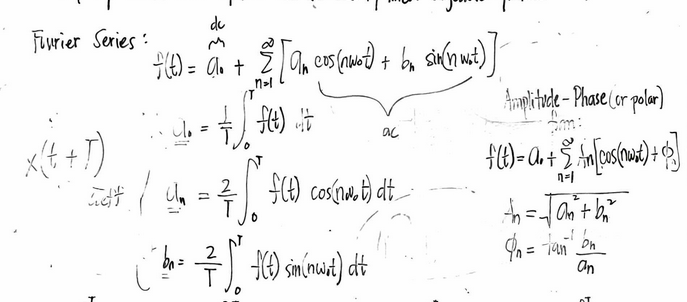 dc
Fourier Series:
f(t) = a₀ + ∑_{n=1}^{∞} [aₙ cos(nω₀t) + bₙ sin(nω₀t)]
ac
a₀ = 1/T ∫₀ᵀ f(t) dt
x(t + T)
aₙ = 2/T ∫₀ᵀ f(t) cos(nω₀t) dt
bₙ = 2/T ∫₀ᵀ f(t) sin(nω₀t) dt
Amplitude-Phase (or polar)
form:
f(t) = a₀ + ∑_{n=1}^{∞} Aₙ[cos(nω₀t) + ϕₙ]
Aₙ = √(aₙ² + bₙ²)
ϕₙ = tan⁻¹ bₙ/aₙ